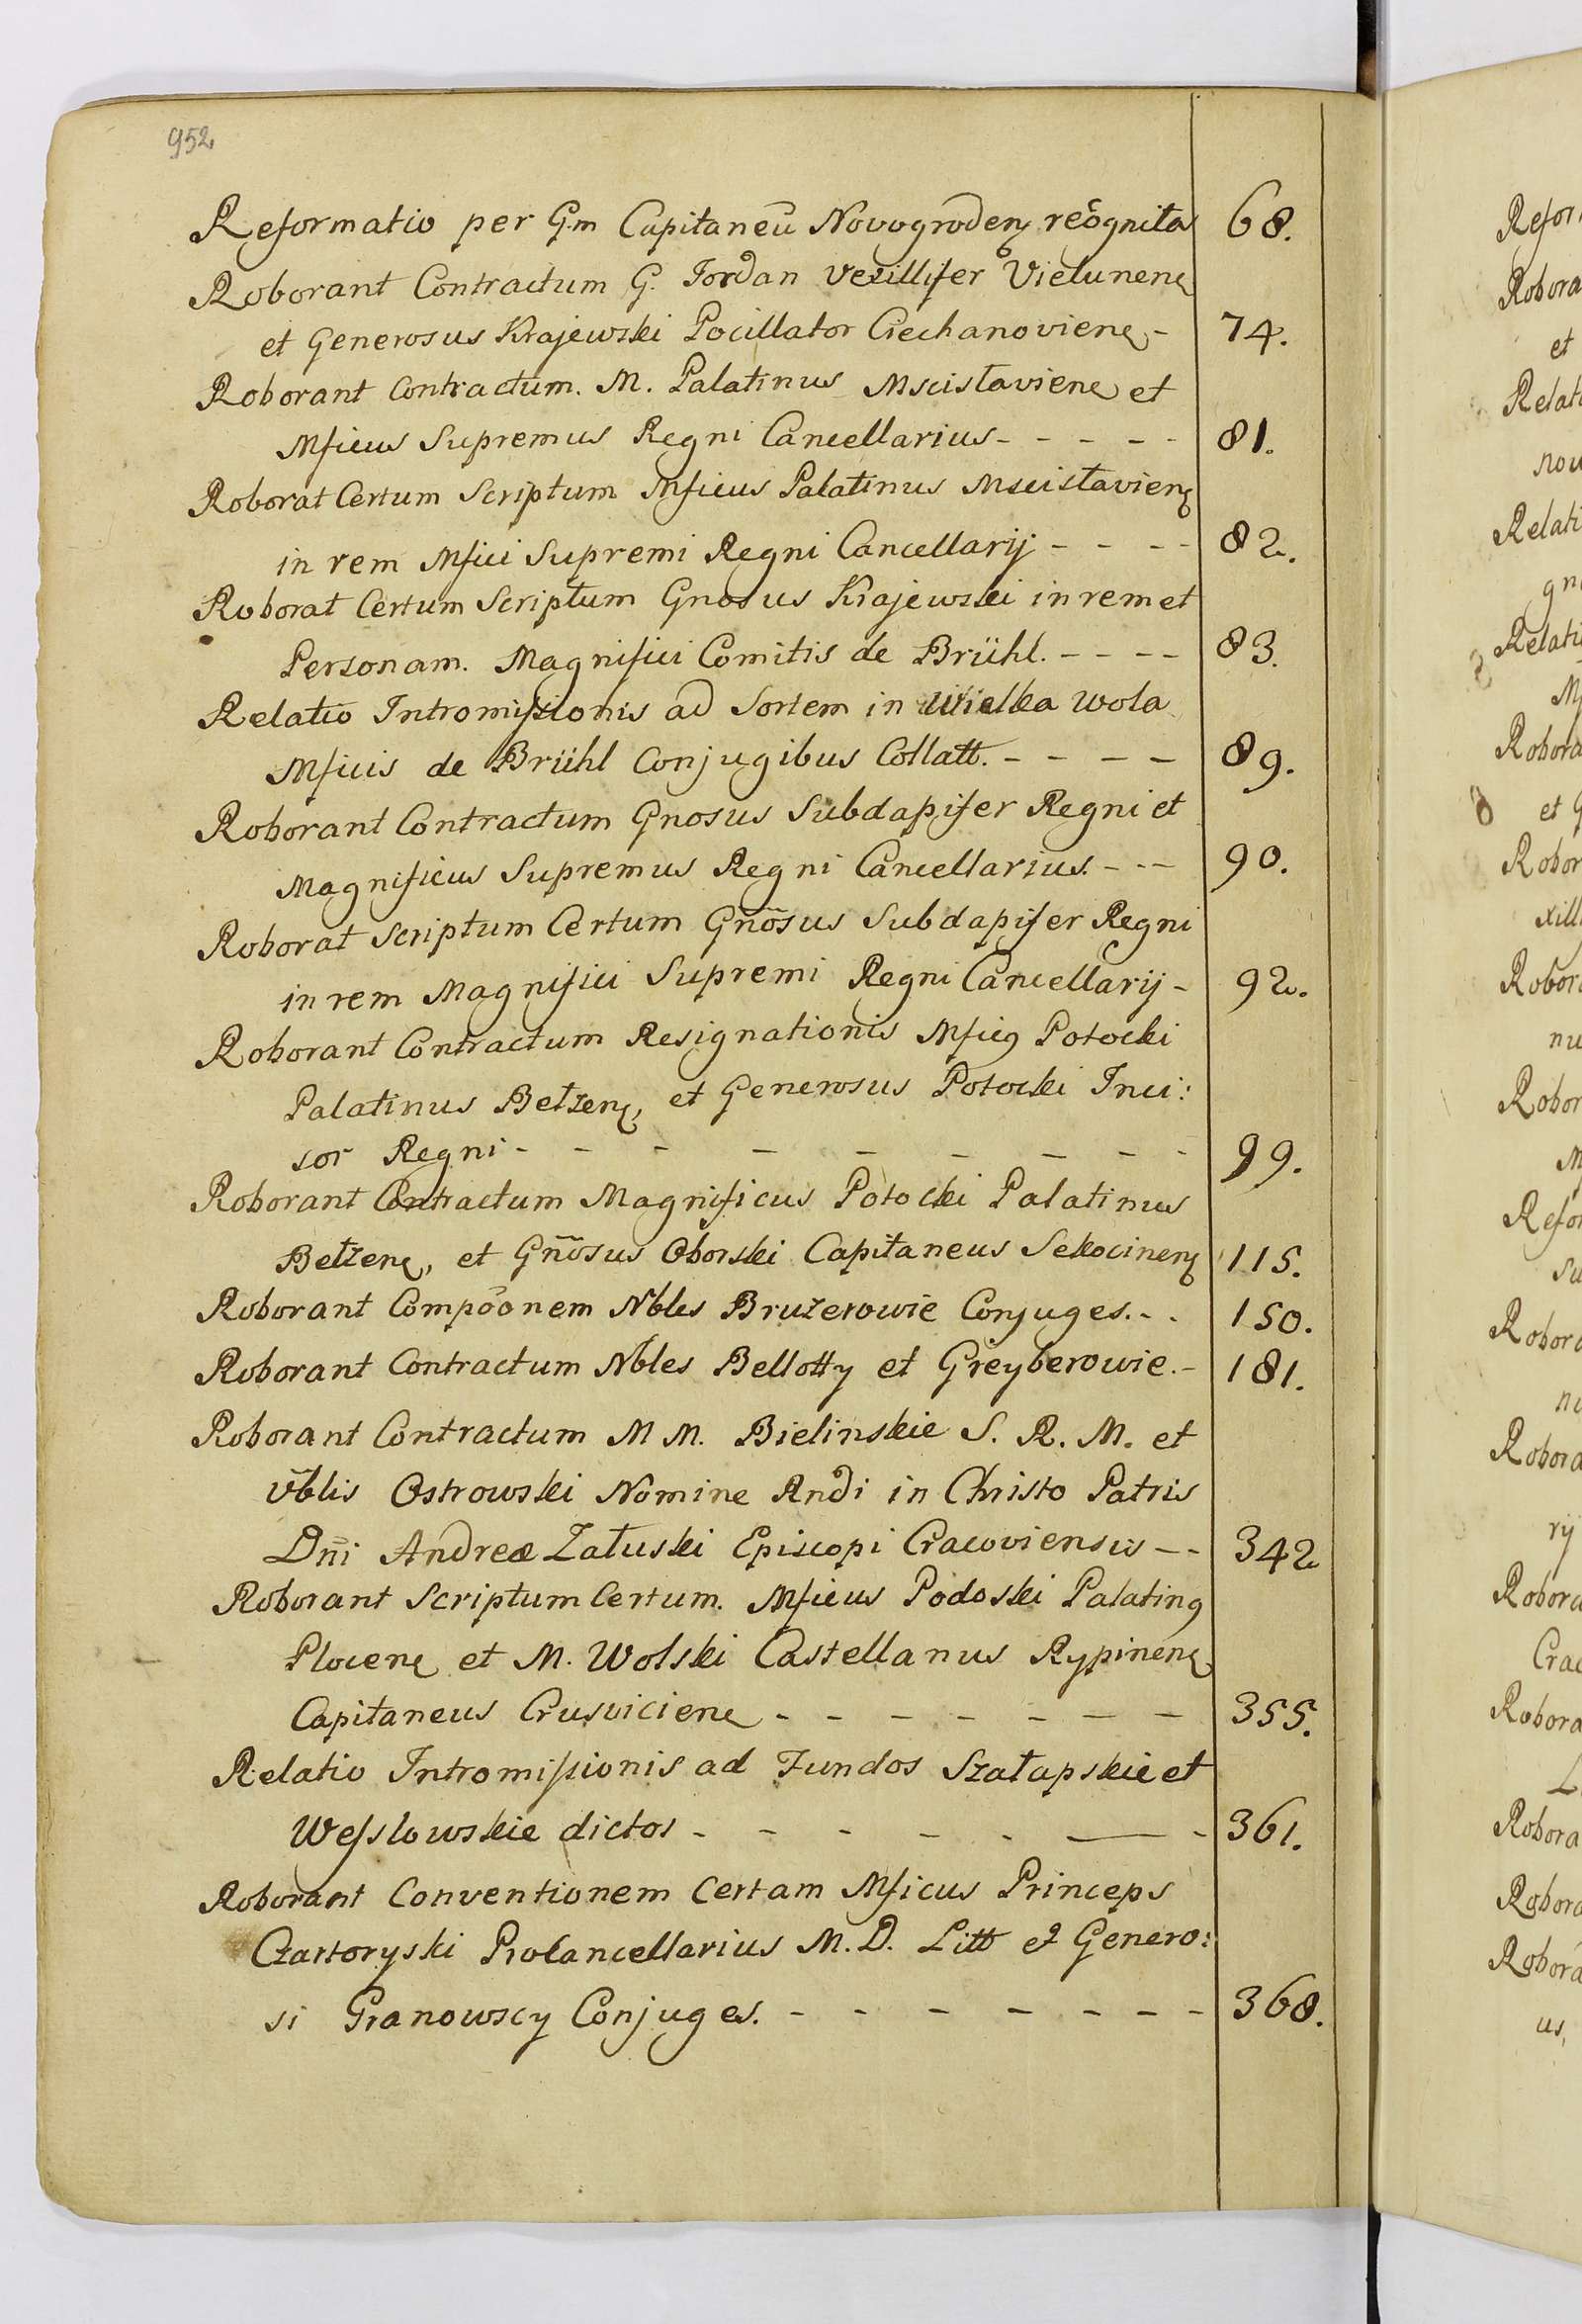 952
Reformatio per Gm Capitaneū Novogroden recognita 68.
Roborant Contractum G. Jordan Vexillifer Vielunen
et Generosus Krajewski Pocillator Ciechanovien - 74.
Roborant Contractum. M. Palatinus Mscisłavien et
Mficus Supremus Regni Cancellarius - - - - - 81.
Roborat Certum Scriptum Mficus Palatinus Mscisłavien
in rem Mfici Supremi Regni Cancellarij - - - - 82.
Roborat Certum Scriptum Gnosus Krajewski in rem et
Personam. Magnifici Comitis de Brühl. - - - - 83.
Relatio Intromissionis ad Sortem in Wielka Wola
Mficis de Brühl Conjugibus Collatt. - - - - 89.
Roborant Contractum Gnosus Subdapifer Regni et
Magnificus Supremus Regni Cancellarius. - - - 90.
Roborat Scriptum Certum Gnõsus Subdapifer Regni
in rem Magnifici Supremi Regni Cancellarij - 92.
Roborant Contractum Resignationis Mficus Potocki
Palatinus Bełzen, et Generosus Potocki Inci:
sor Regni - - - - - - - - - 99.
Roborant Contractum Magnificus Potocki Palatinus
Bełzen, et Gnõsus Oborski Capitaneus Sekocinen 115.
Roborant Compõonem Nbles Bruzerowie Conjuges. - . 150.
Roborant Contractum Nbles Bellotty et Greyberowie. - 181.
Roborant Contractum M M. Bielinskie S. R. M. et
Vblis Ostrowski Nomine Rndi in Christo Patris
Dñi Andreæ Załuski Episcopi Cracoviensis - - 342
Roborant Scriptum Certum. Mficus Podoski Palatinus
Plocen et M. Wolski Castellanus Rypinen
Capitaneus Crusvicien - - - - - - - 355.
Relatio Intromissionis ad Fundos Szałapskie et
Wesslowskie dictos - - - - - - - 361.
Roborant Conventionem Certam Mficus Princeps
Czartoryski Procancellarius M. D. Litt et Genero:
si Granowscy Conjuges. - - - - - - - 368.